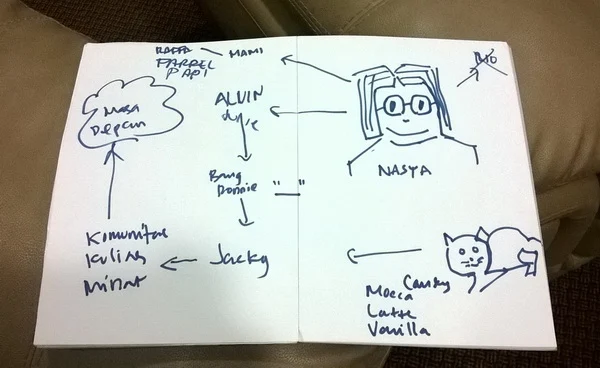 RAFFA — MAMI
FARREL
PAPI
ALVIN
dye
Masa
Depan
NASYA
Bang
Donnie
"__"
Komunitas
Kuliah
Minat
Jacky
Candy
Mocca
Latte
Vanilla